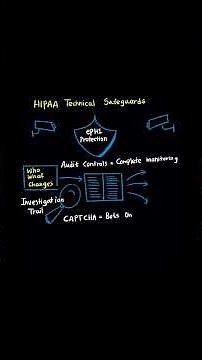 HIPAA Technical Safeguards
ePHI
Protection
Audit Controls = Complete monitoring
Who
What
Changes
Investigation
Trail
CAPTCHA = Bots On